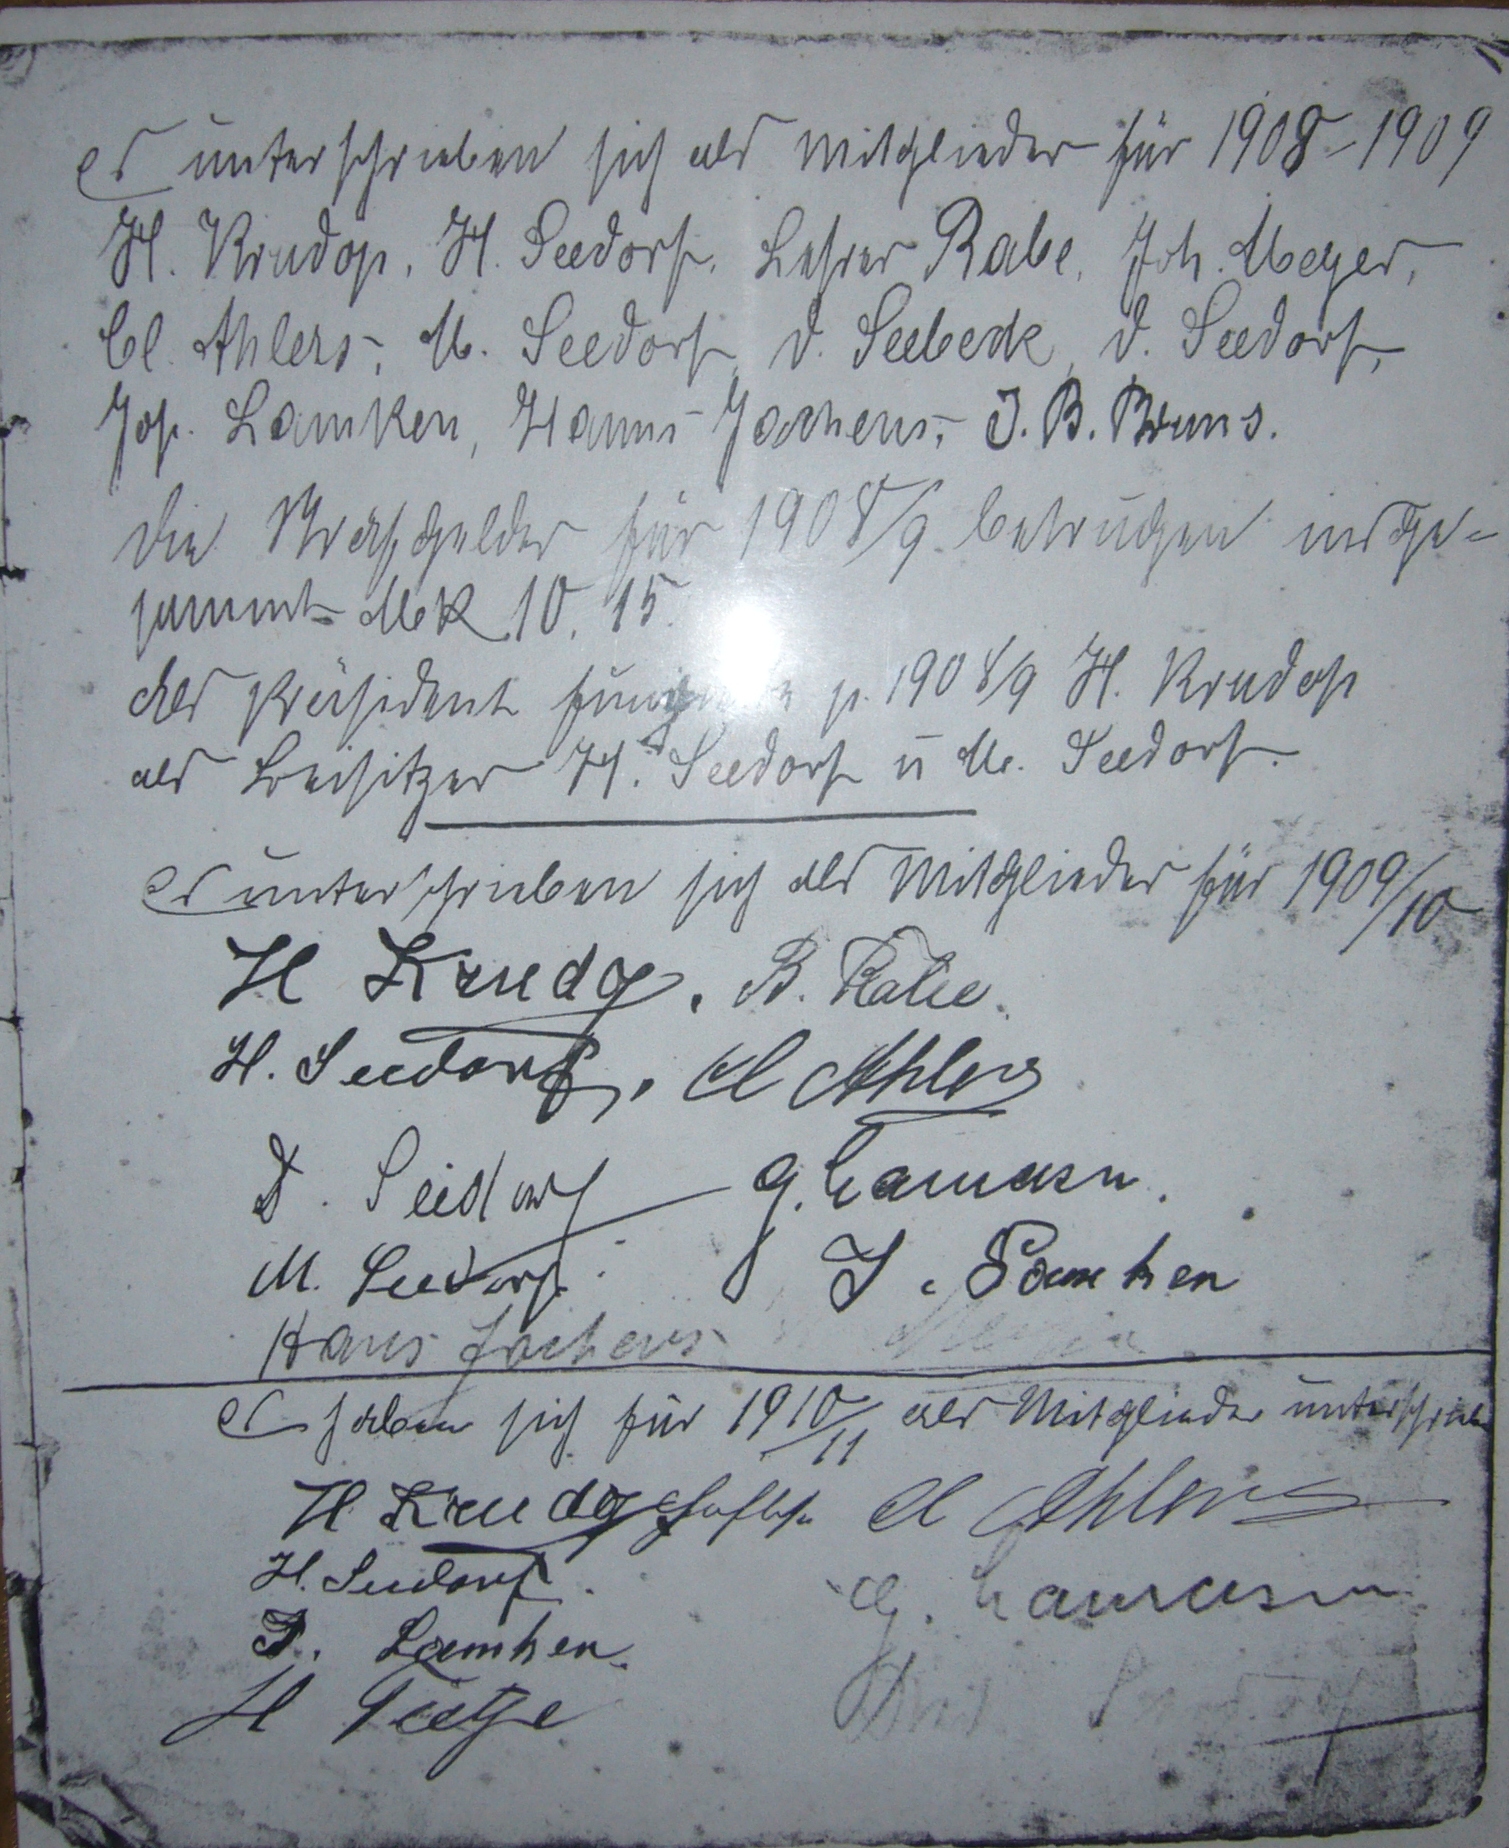 Es unterschrieben sich als Mitglieder für 1908–1909
H. Krudop, H. Seedorf, Lehrer Rabe, Joh. Meyer,
Cl. Ahlers, M. Seedorf, D. Seebeck, D. Seedorf,
Jos. Lamken, Hanns Jachens, J. B. Bruns.
Die Strafgelder für 1908/9 betrugen insge-
samnt Mk 10,15.
Als Präsident p. 1908/9 H. Krudop
als Beisitzer H. Seedorf u M. Seedorf.
Es unterschrieben sich als Mitglieder für 1909/10
H Krudop, B. Rabe.
H. Seedorf, Cl Ahlers
D. Seedorf G.
M. Seedorf. J. Lamken
Hans Jachens
Es haben sich für 1910/11 als Mitglieder unterschrieben
H Krudop Cl Ahlers
H. Seedorf. G.
J. Lamken.
H Tietje